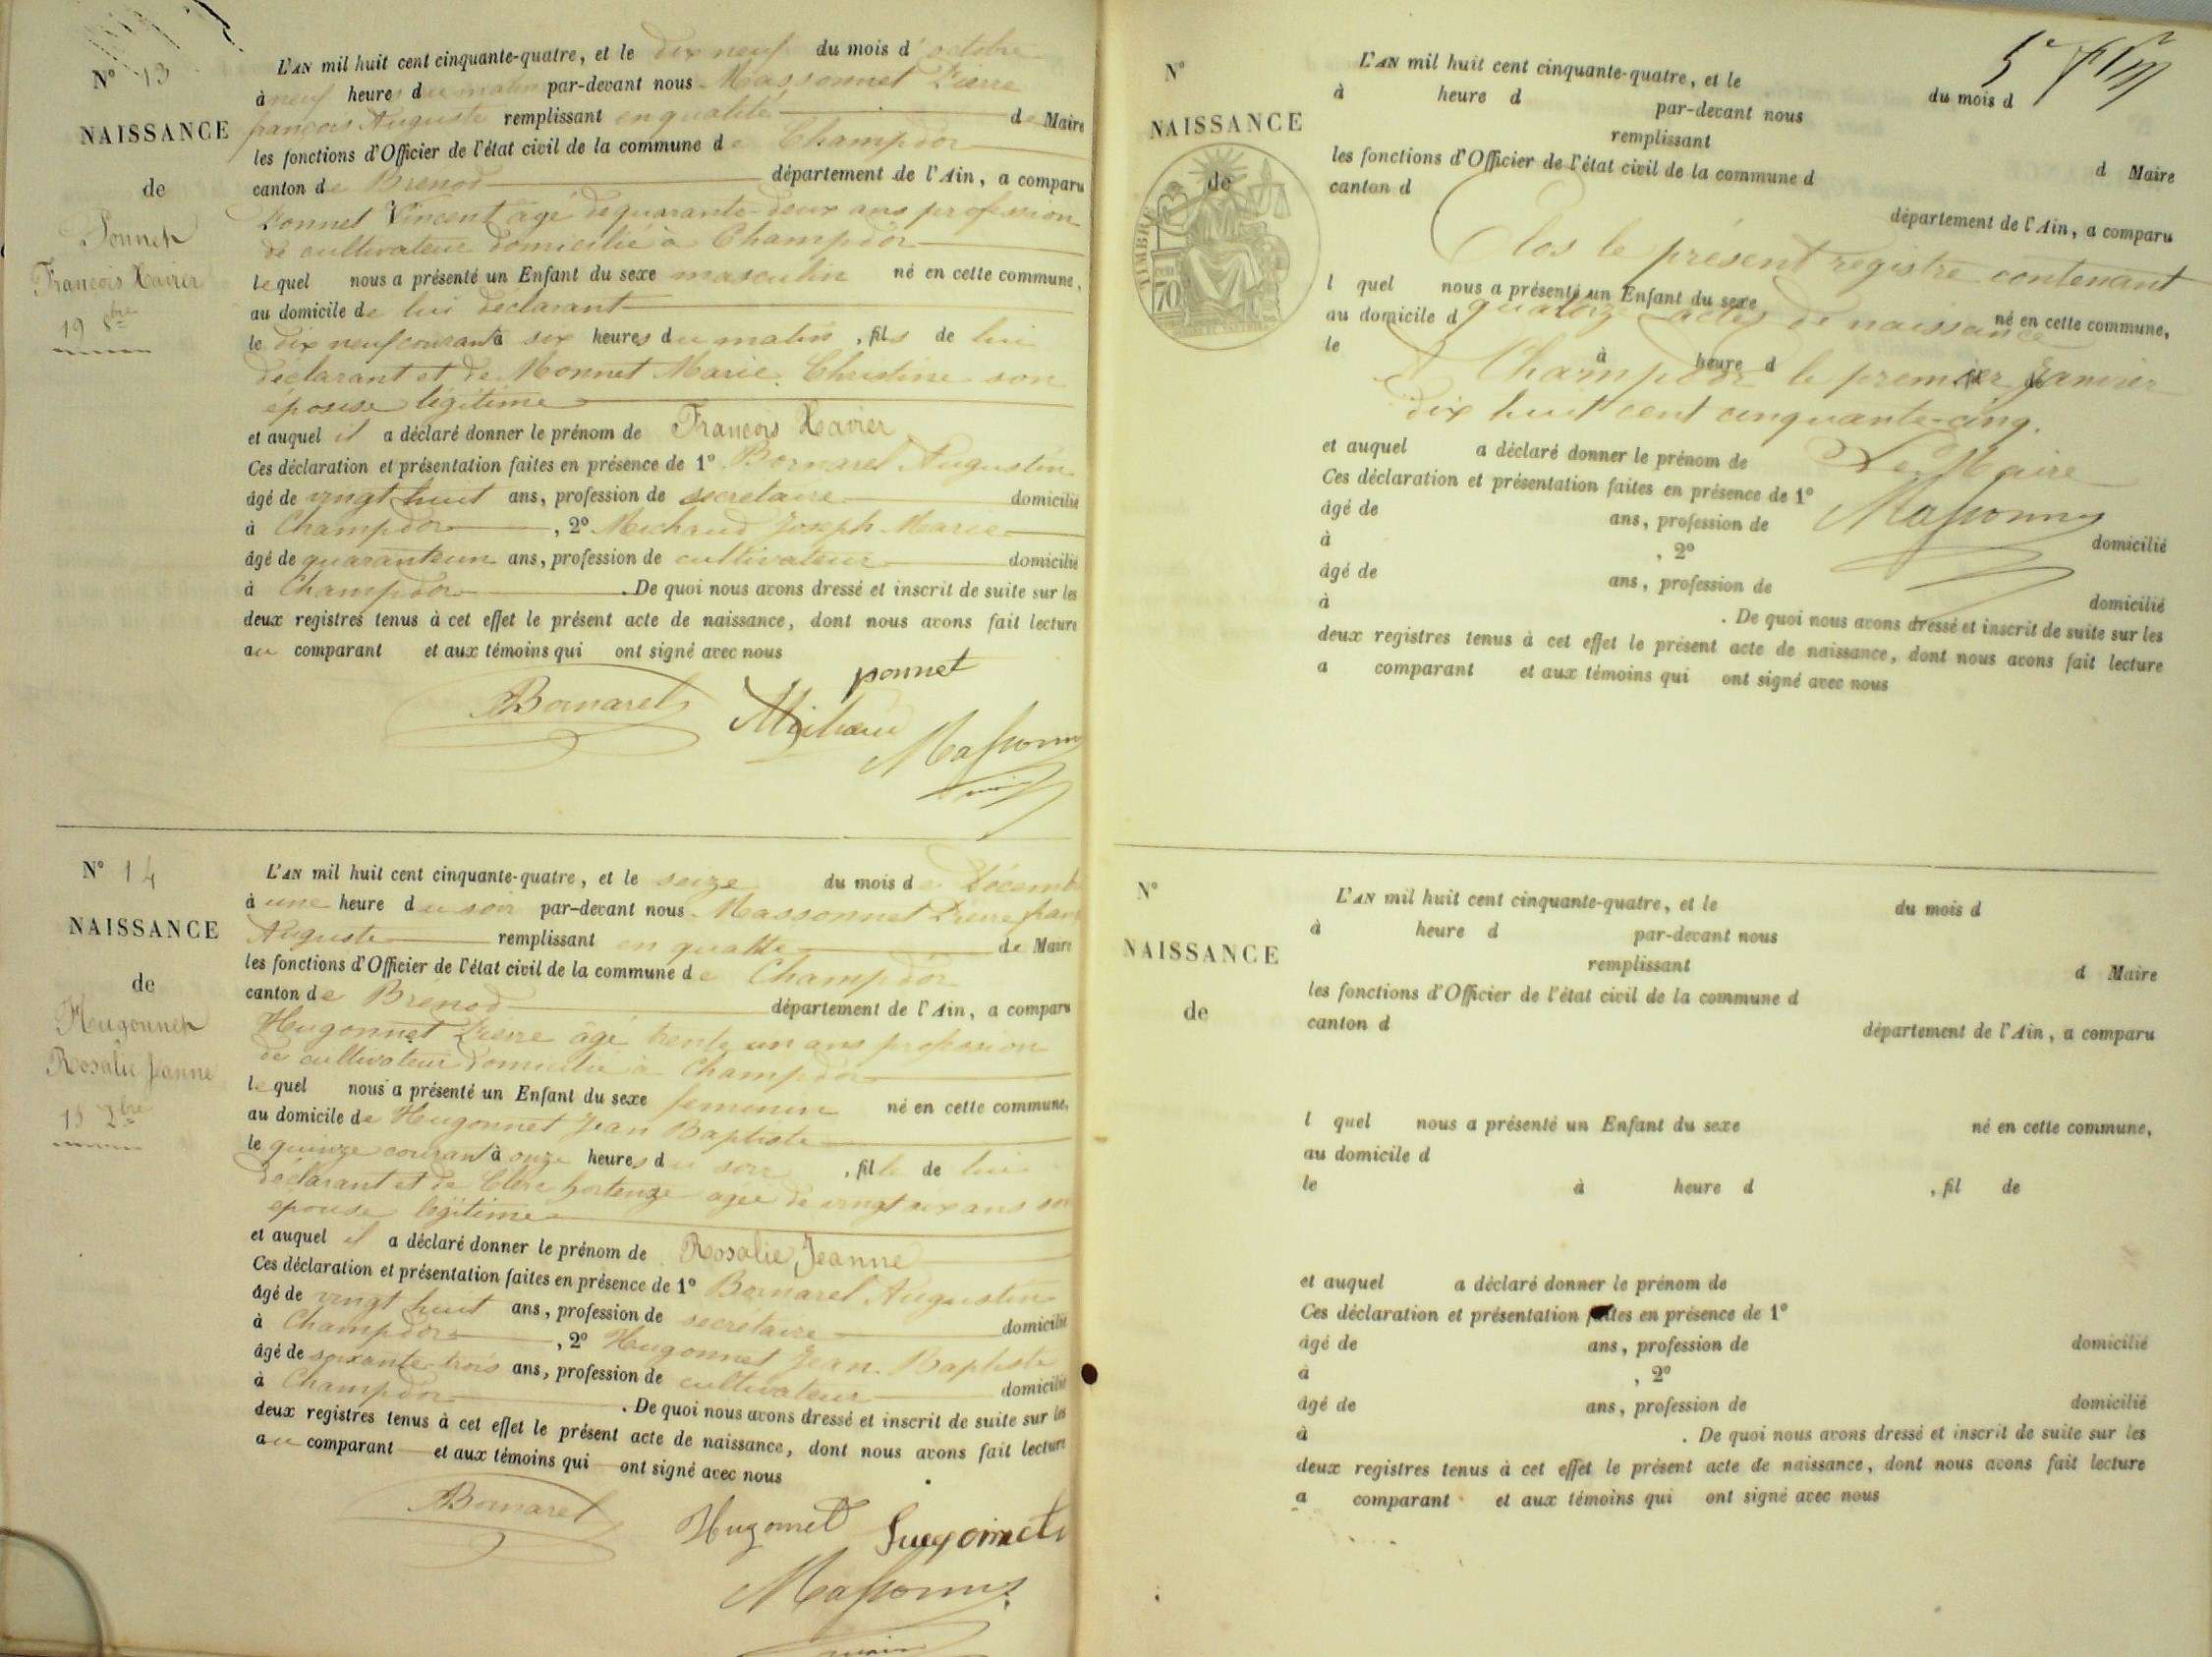 N° 13
NAISSANCE
de
Ponnet
François Xavier
19 8bre
L'AN mil huit cent cinquante-quatre, et le dix neuf du mois d'octobre
à neuf heures du matin par-devant nous Massonnet Pierre
françois Auguste remplissant en qualité de Maire
les fonctions d'Officier de l'état civil de la commune de Champdor
canton de Brenod département de l'Ain, a comparu
Ponnet Vincent agé de quarante-deux ans profession
de cultivateur domicilié à Champdor
lequel nous a présenté un Enfant du sexe masculin né en cette commune,
au domicile de lui declarant
le dix neuf courant à six heures du matin, fils de lui
déclarant et de Monnet Marie Christine son
épouse légitime
et auquel il a déclaré donner le prénom de François Xavier
Ces déclaration et présentation faites en présence de 1° Bornarel Augustin
âgé de vingt huit ans, profession de secretaire domicilié
à Champdor, 2° Michaud Joseph Marie
âgé de quarante un ans, profession de cultivateur domicilié
à Champdor. De quoi nous avons dressé et inscrit de suite sur les
deux registres tenus à cet effet le présent acte de naissance, dont nous avons fait lecture
au comparant et aux témoins qui ont signé avec nous
ponnet
Bornarel Michaud
N° 14
NAISSANCE
de
Hugonnet
Rosalie Jeanne
15
L'AN mil huit cent cinquante-quatre, et le seize du mois de Décemb
à une heure du soir par-devant nous Massonnet Pierre fran
Auguste remplissant en qualité de Maire
les fonctions d'Officier de l'état civil de la commune de Champdor
canton de Brénod département de l'Ain, a comparu
Hugonnet Pierre âgé trente un ans profession
de cultivateur domicilié à Champdor
lequel nous a présenté un Enfant du sexe feminin né en cette commune,
au domicile de Hugonnet Jean Baptiste
le quinze courant à onze heures du soir, fille de lui
déclarant et de Clerc hortenze agée de vingt six ans son
épouse légitime
et auquel il a déclaré donner le prénom de Rosalie Jeanne
Ces déclaration et présentation faites en présence de 1° Bornarel Augustin
âgé de vingt huit ans, profession de secrétaire domicilié
à Champdor, 2° Hugonnet Jean Baptiste
âgé de soixante trois ans, profession de cultivateur domicilié
à Champdor. De quoi nous avons dressé et inscrit de suite sur les
deux registres tenus à cet effet le présent acte de naissance, dont nous avons fait lecture
au comparant et aux témoins qui ont signé avec nous
Bornarel Hugonnet
N°
NAISSANCE
de
TIMBRE
70
L'AN mil huit cent cinquante-quatre, et le du mois d
à heure d par-devant nous
remplissant d Maire
les fonctions d'Officier de l'état civil de la commune d
canton d département de l'Ain, a comparu
Clos le présent registre contenant
l quel nous a présenté un Enfant du sexe né en cette commune,
quatorze actes de naissance
au domicile d
le à heure d
A Champdor le premier Janvier
dix huit cent cinquante-cinq.
et auquel a déclaré donner le prénom de
Le Maire
Ces déclaration et présentation faites en présence de 1°
âgé de ans, profession de domicilié
à , 2°
âgé de ans, profession de domicilié
à . De quoi nous avons dressé et inscrit de suite sur les
deux registres tenus à cet effet le présent acte de naissance, dont nous avons fait lecture
a comparant et aux témoins qui ont signé avec nous
N°
NAISSANCE
de
L'AN mil huit cent cinquante-quatre, et le du mois d
à heure d par-devant nous
remplissant d Maire
les fonctions d'Officier de l'état civil de la commune d
canton d département de l'Ain, a comparu
l quel nous a présenté un Enfant du sexe né en cette commune,
au domicile d
le à heure d , fil de
et auquel a déclaré donner le prénom de
Ces déclaration et présentation faites en présence de 1°
âgé de ans, profession de domicilié
à , 2°
âgé de ans, profession de domicilié
à . De quoi nous avons dressé et inscrit de suite sur les
deux registres tenus à cet effet le présent acte de naissance, dont nous avons fait lecture
a comparant et aux témoins qui ont signé avec nous